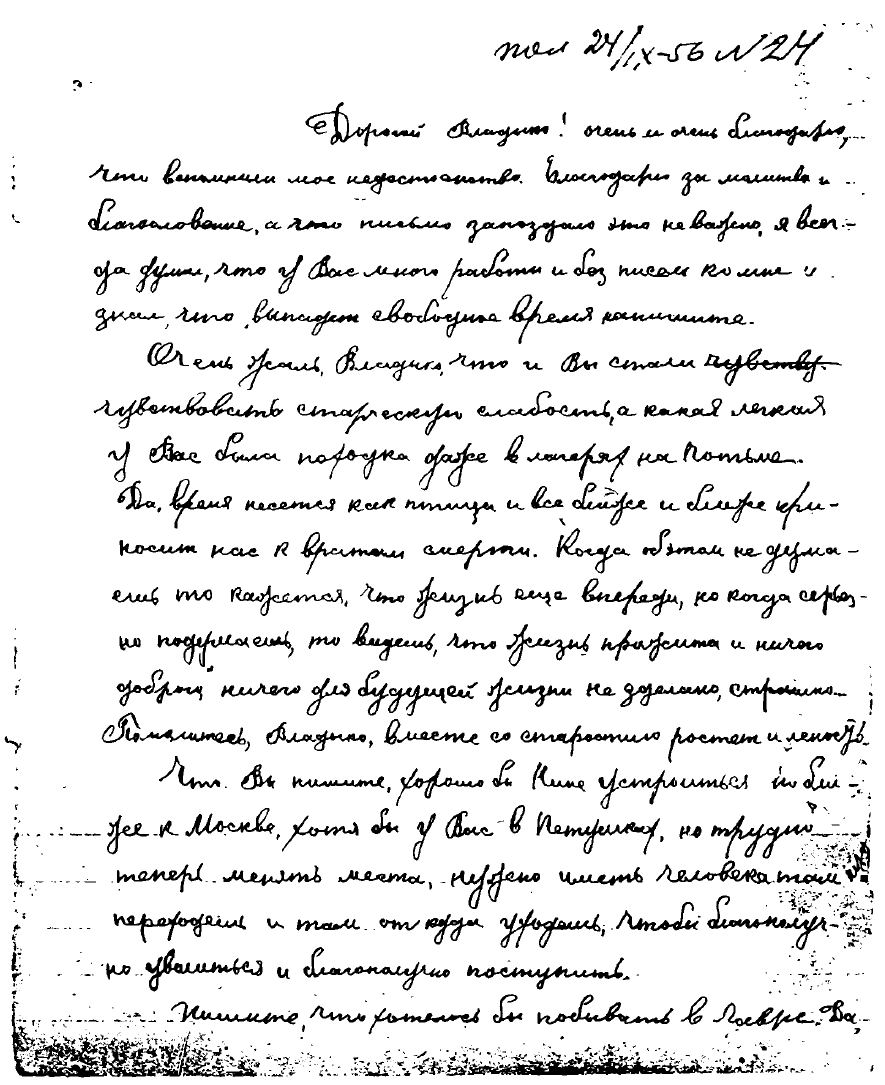 пол 24/IX-56 N 24
Дорогой Владыко! очень и очень благодарю,
что вспомнили мое недостоинство. Благодарю за молитвы и
благословение, а что письмо запоздало это не важно, я всег-
да думал, что у Вас много работы и без писем ко мне и
знал, что, выпадет свободное время напишите.
Очень жаль, Владыко, что и Вы стали чувству-
чувствовать старческую слабость, а какая легкая
у Вас была походка даже в лагерях на Потьме.
Да, время несется как птица и все ближе и ближе при-
носит нас к вратам смерти. Когда об этом не дума-
ешь то кажется, что жизнь еще впереди, но когда серьез-
но подумаешь, то видешь, что жизнь прожита и ничего
доброго ничего для будущей жизни не зделано, страшно.
Помолитесь, Владыко, вместе со старостию ростет и леность.
Что Вы пишите, хорошо бы Нине устроиться побли-
же к Москве, хотя бы у Вас в Петушках, но трудно
теперь менять места, нужно иметь человека там
переходешь и там от куда уходешь, чтобы благополуч-
но уволиться и благополучно поступить.
Пишите, что хотелось бы побывать в Лавре. Да,